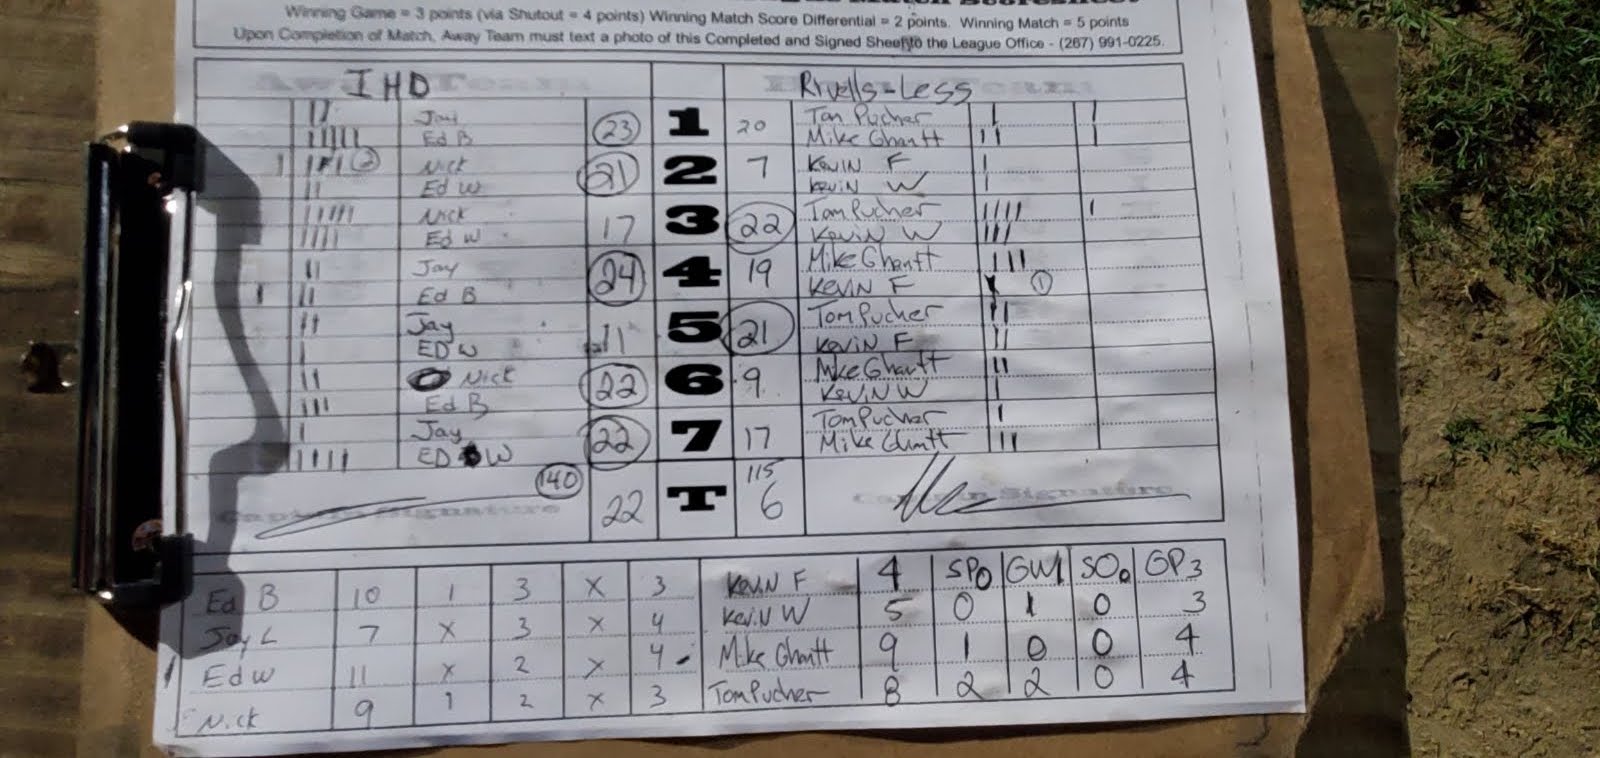 Winning Game = 3 points (via Shutout = 4 points) Winning Match Score Differential = 2 points. Winning Match = 5 points
Upon Completion of Match, Away Team must text a photo of this Completed and Signed Sheet to the League Office - (267) 991-0225.
IHD Rivells-Less
Jay 23 1 20 Tom Pucher
Ed B Mike Ghantt
Nick 21 2 7 Kevin F
Ed W Kevin W
Nick 17 3 22 Tom Pucher
Ed W Kevin W
Jay 24 4 19 Mike Ghantt
Ed B Kevin F 1
Jay 11 5 21 Tom Pucher
ED W Kevin F
Nick 22 6 9 Mike Ghantt
Ed B Kevin W
Jay 22 7 17 Tom Pucher
ED W Mike Ghantt
140 22 T 115 6
Captain Signature Captain Signature
Ed B 10 1 3 X 3 Kevin F 4 SP0 GW1 SO0 GP3
Jay L 7 X 3 X 4 Kevin W 5 0 1 0 3
Ed W 11 X 2 X 4 Mike Ghantt 9 1 0 0 4
Nick 9 1 2 X 3 Tom Pucher 8 2 2 0 4